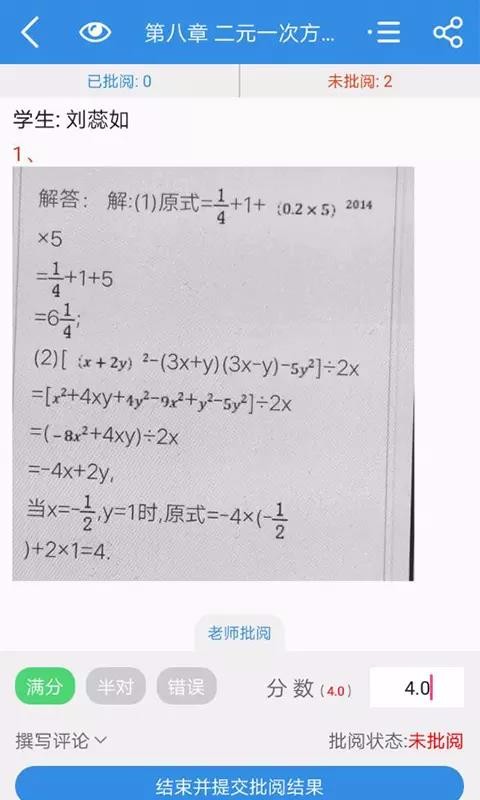 第八章 二元一次方...
已批阅: 0
未批阅: 2
学生: 刘蕊如
1、
解答： 解:(1)原式=1/4+1+ (0.2×5) ²⁰¹⁴
×5
=1/4+1+5
=6 1/4;
(2)[ (x+2y) ²−(3x+y)(3x-y)−5y²]÷2x
=[x²+4xy+4y²−9x²+y²−5y²]÷2x
=(−8x²+4xy)÷2x
=-4x+2y,
当x=-1/2,y=1时,原式=-4×(-1/2
)+2×1=4.
老师批阅
满分 半对 错误 分 数 (4.0) 4.0
撰写评论 批阅状态:未批阅
结束并提交批阅结果